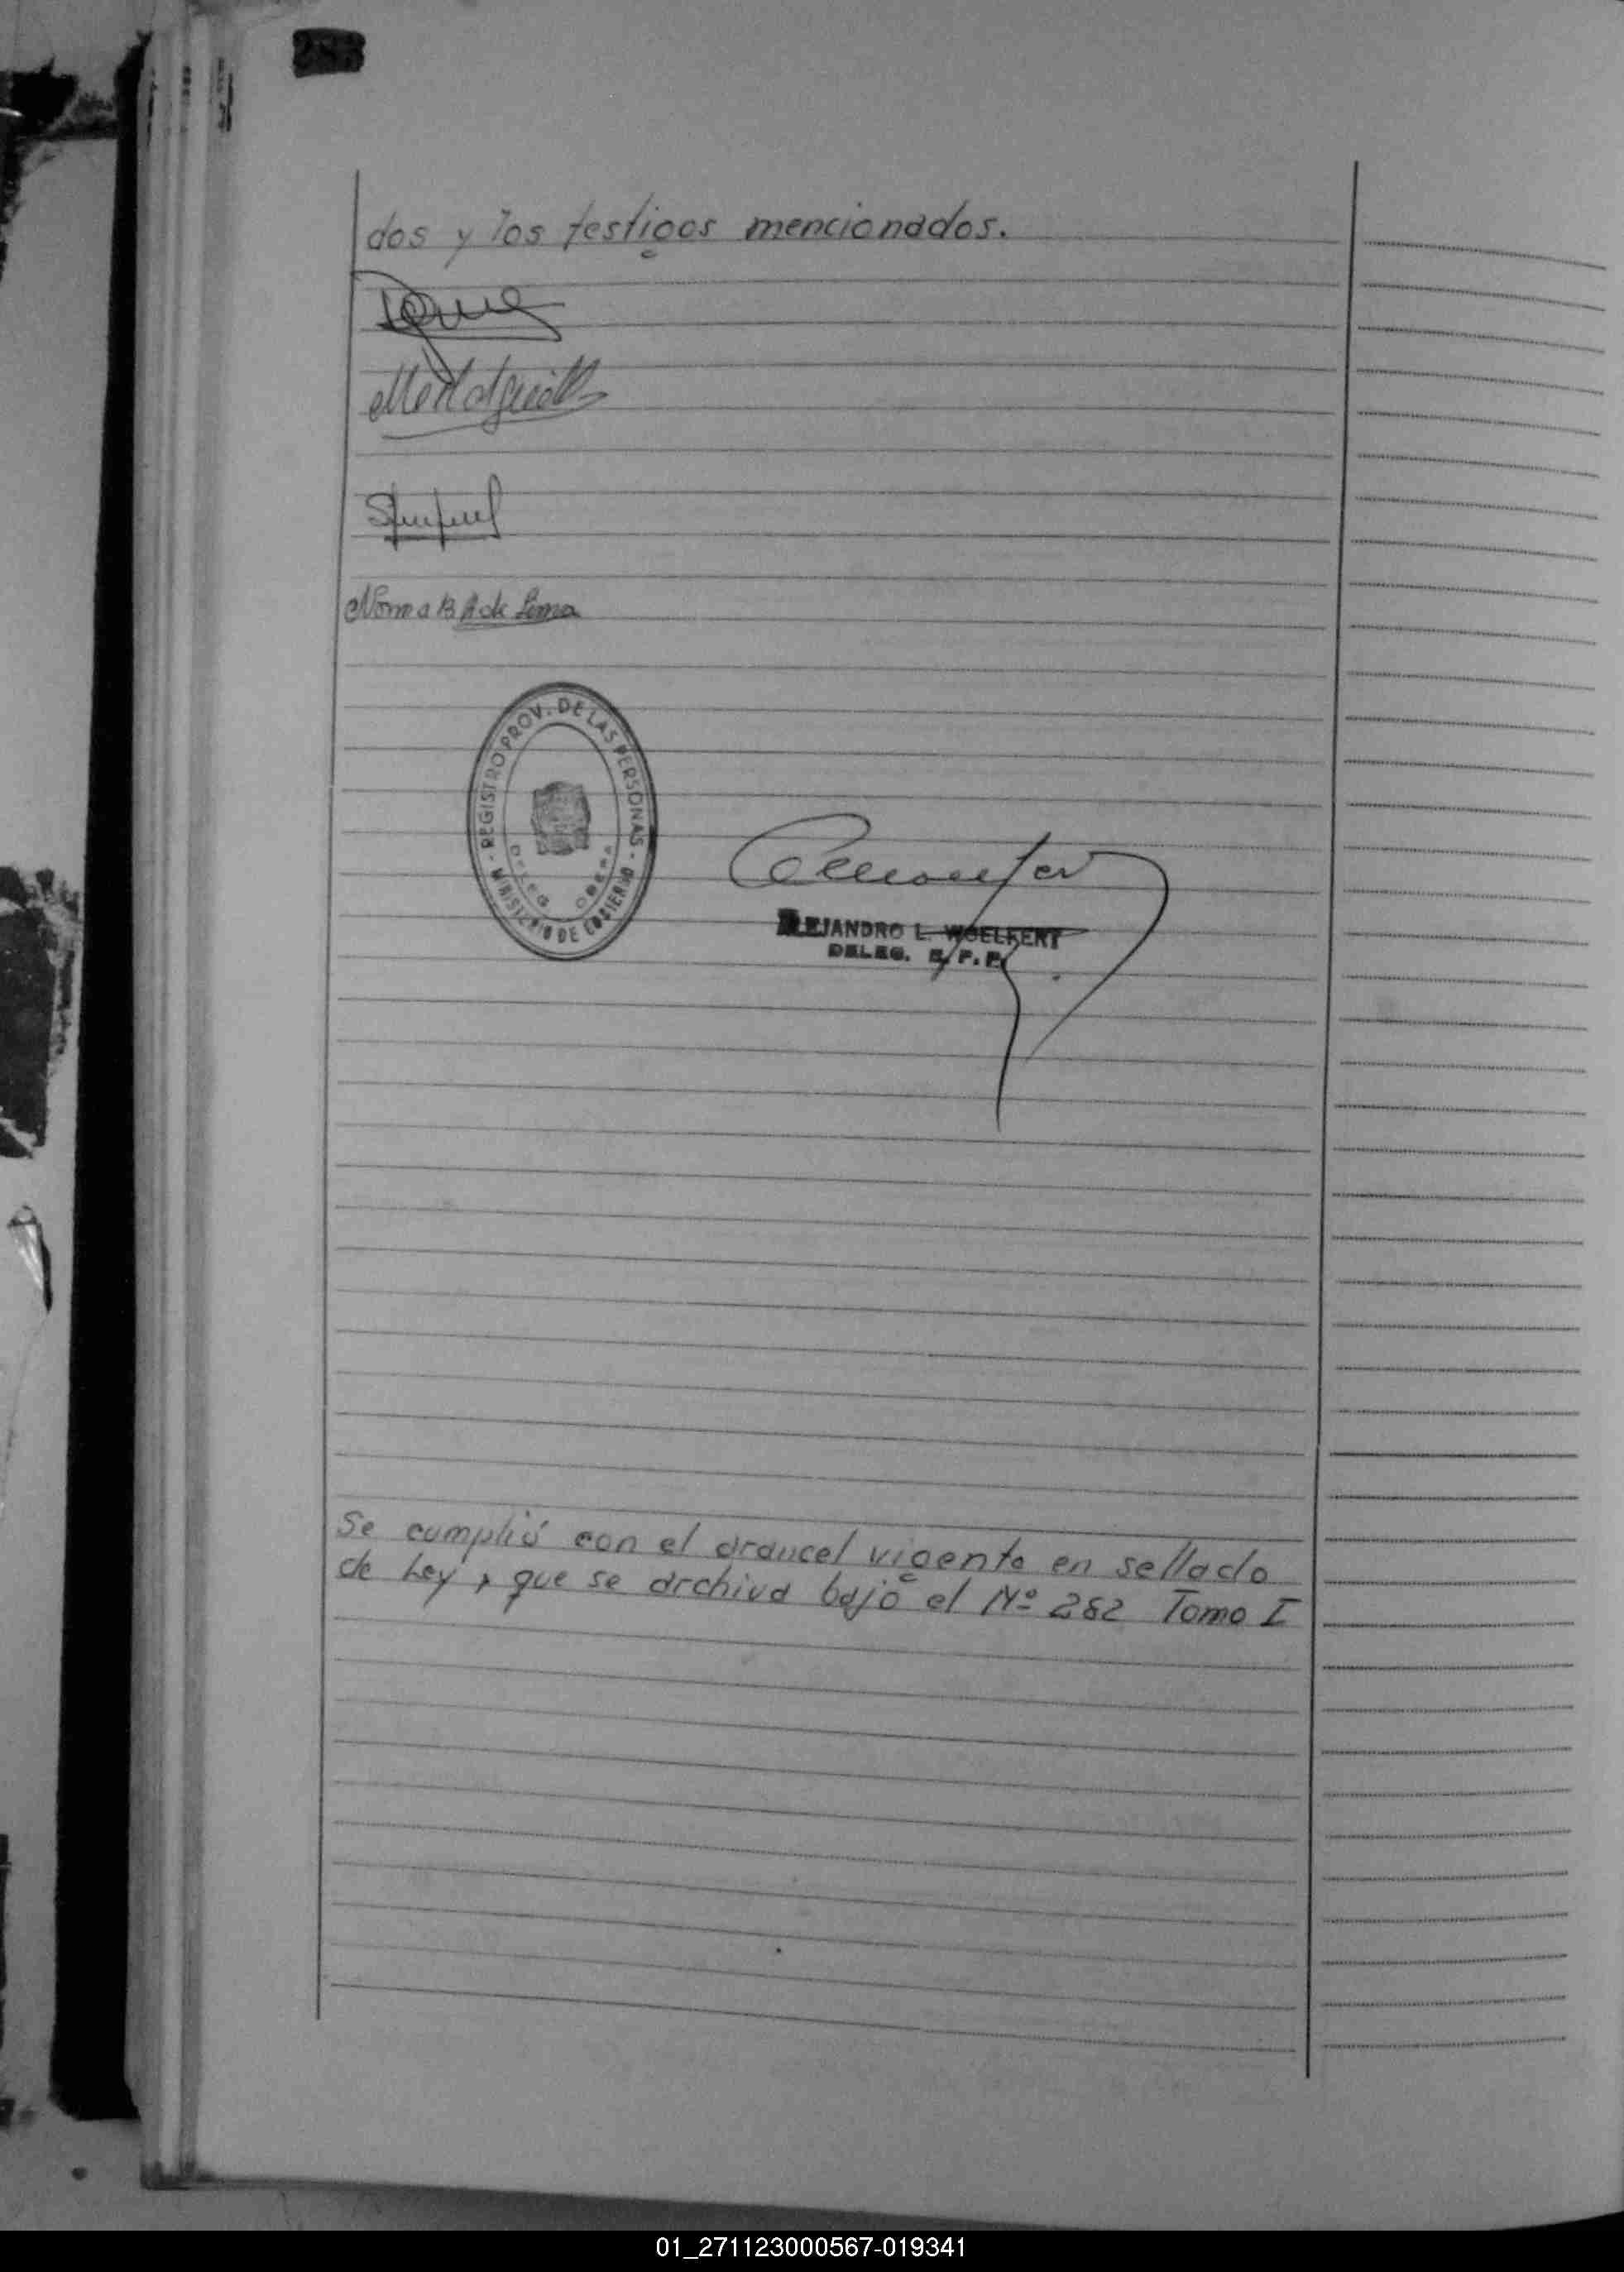 283
dos y los testigos mencionados.
Norma B A de Lema
- REGISTRO PROV. DE LAS PERSONAS -
MINISTERIO DE GOBIERNO
DELEG OBERA
ALEJANDRO L. WOELFERT
DELEG. R. P. P.
Se cumplió con el arancel vigente en sellado
de Ley, que se archiva bajo el Nº 282 Tomo I
01_271123000567-019341